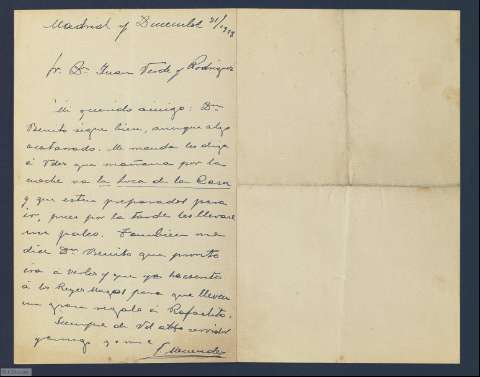 Madrid y Diciembre 31/1918
Sr. Dn Juan Verde y Rodríguez
Mi querido amigo: Dn
Benito sigue bien, aunque algo
acatarrado. Me manda les diga
á Vdes que mañana por la
noche va la loca de la Casa
y que esten preparados para
ir, pues por la tarde les llevaré
un palco. Tambien me
dice Dn Benito que pronto
irá á verles y que ya
á los Reyes Magos para que lleven
un gran regalo á Rafaelito.
Siempre de Vd affo servidor
y amigo q s m e